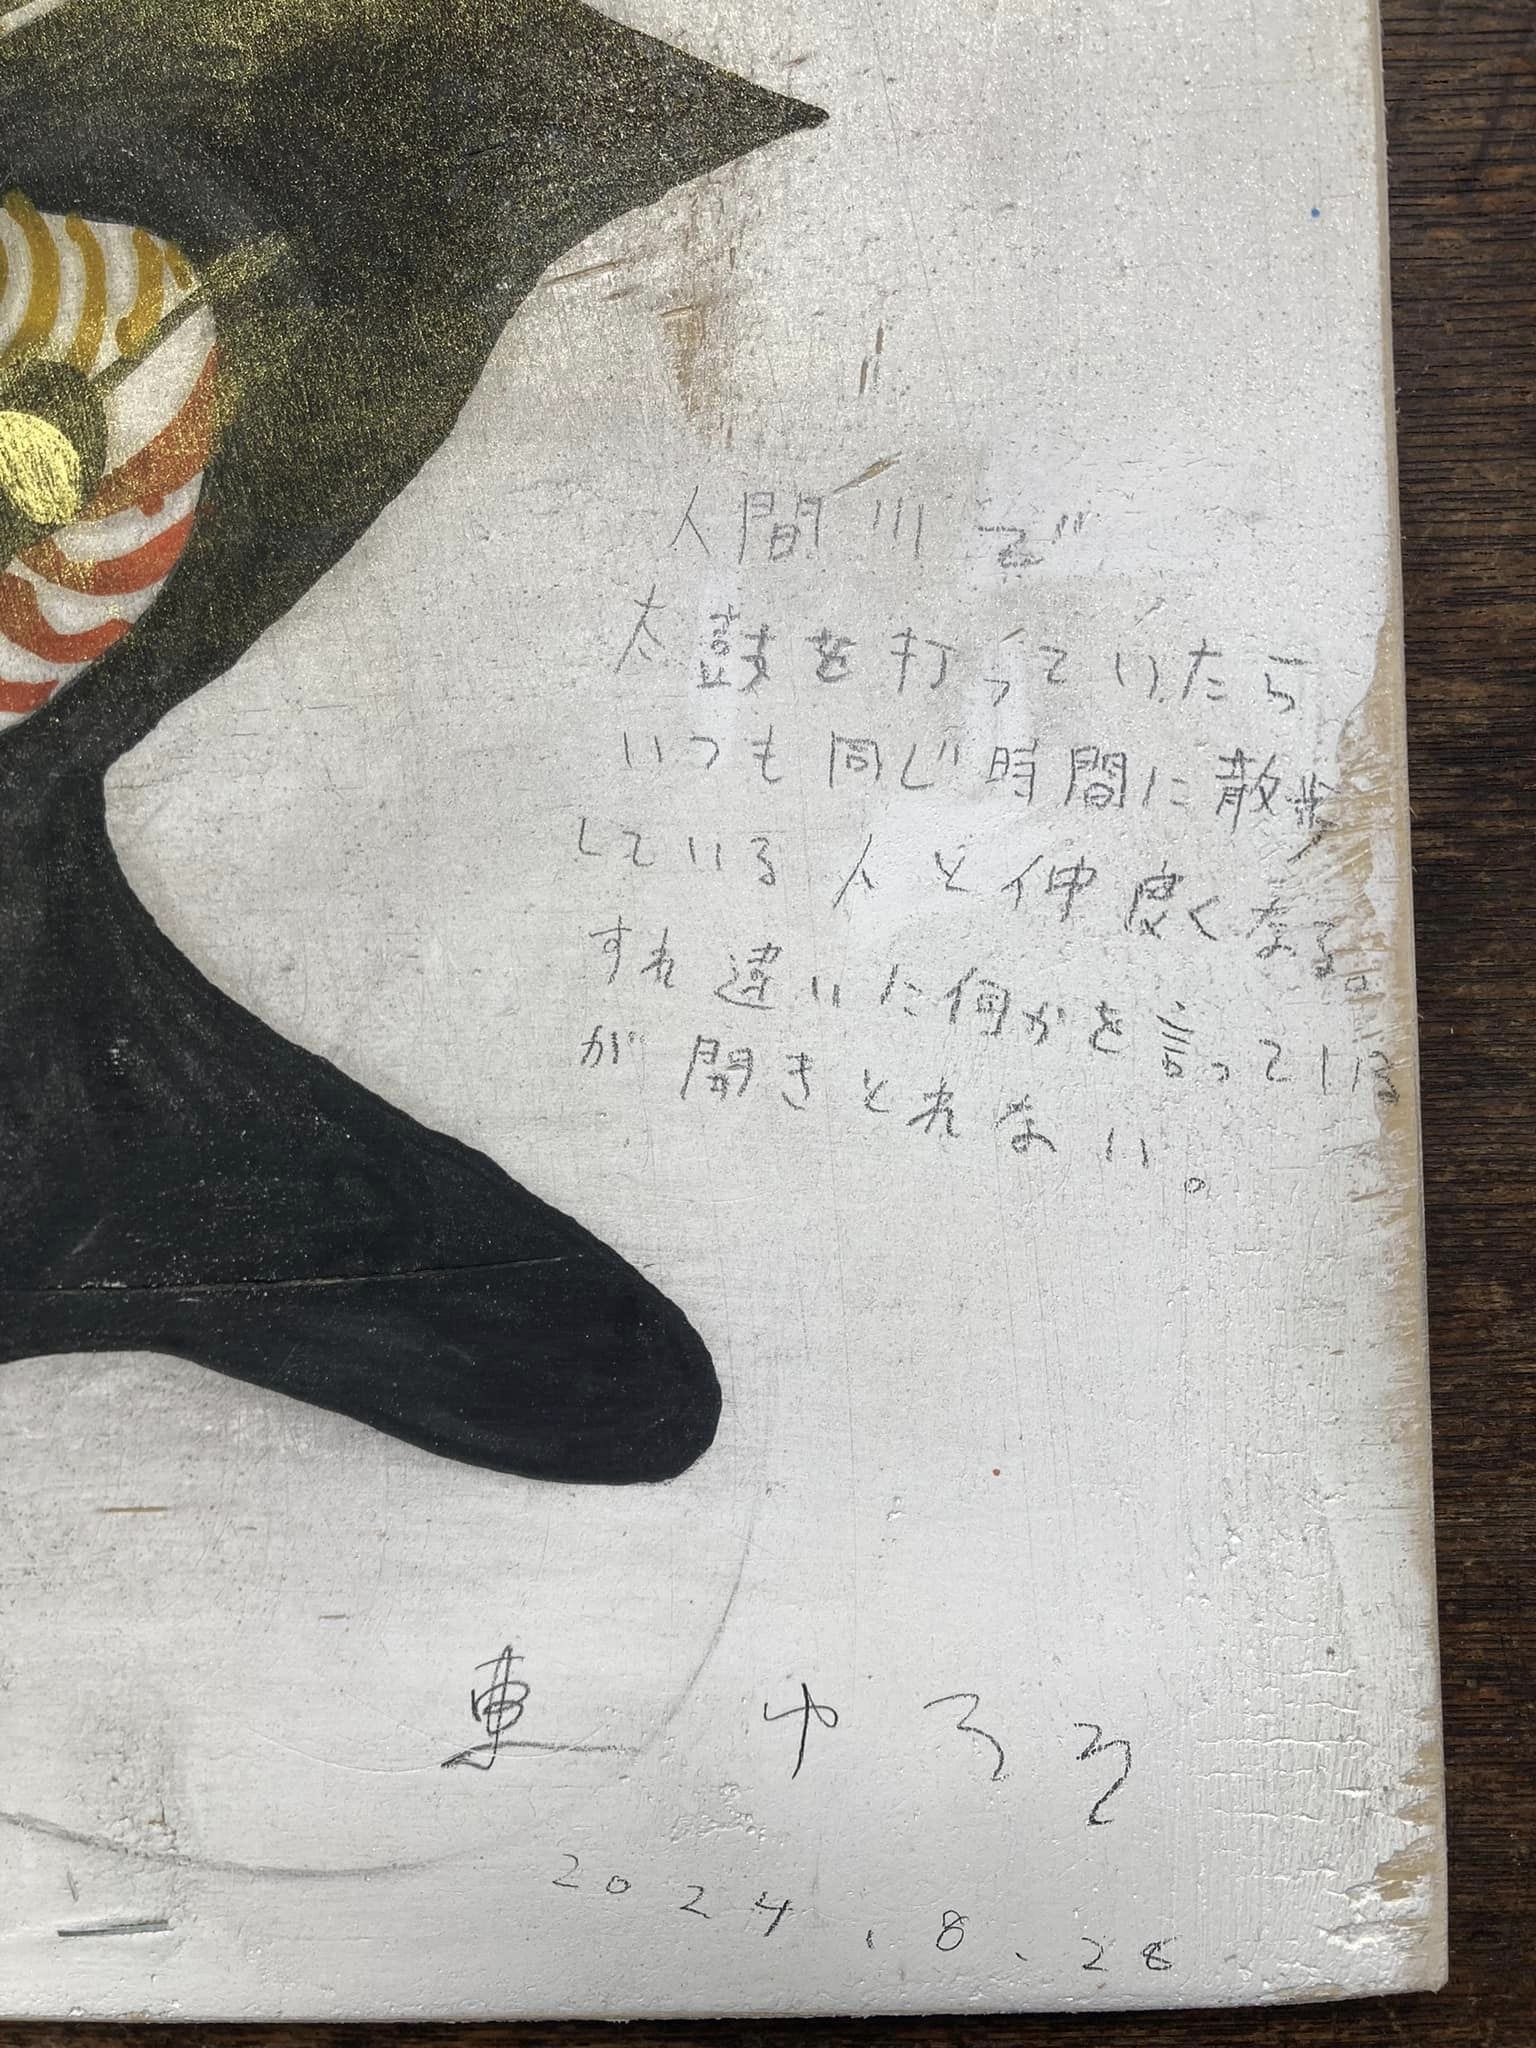 人間川で
太鼓を打っていたら
いつも同じ時間に散歩
している人と仲良くなる。
すれ違いに何かを言っている
が聞きとれない。
東
2024.8.28